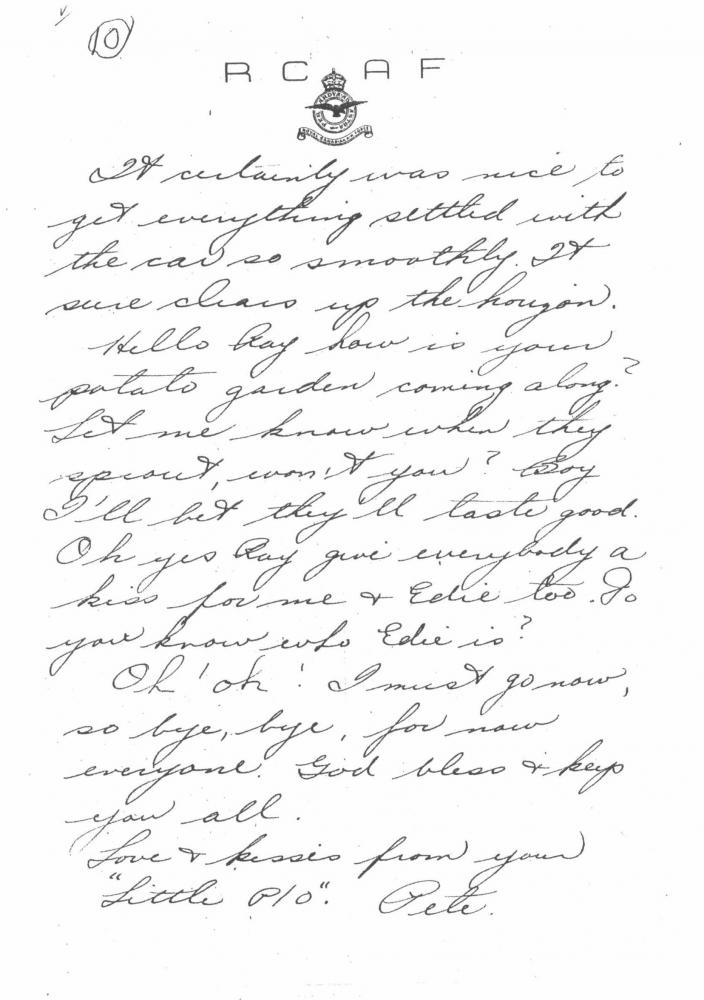 10
R C A F
ROYAL CANADIAN AIR FORCE
It certainly was nice to
get everything settled with
the car so smoothly. It
sure clears up the horizon.
Hello Ray how is your
potato garden coming along?
Let me know when they
sprout, won't you? Boy
I'll bet they'll taste good.
Oh yes Ray give everybody a
kiss for me & Edie too. Do
you know who Edie is?
Oh! oh! I must go now,
so bye, bye, for now
everyone. God bless & keep
you all.
Love & kisses from your
"Little P/O". Pete.